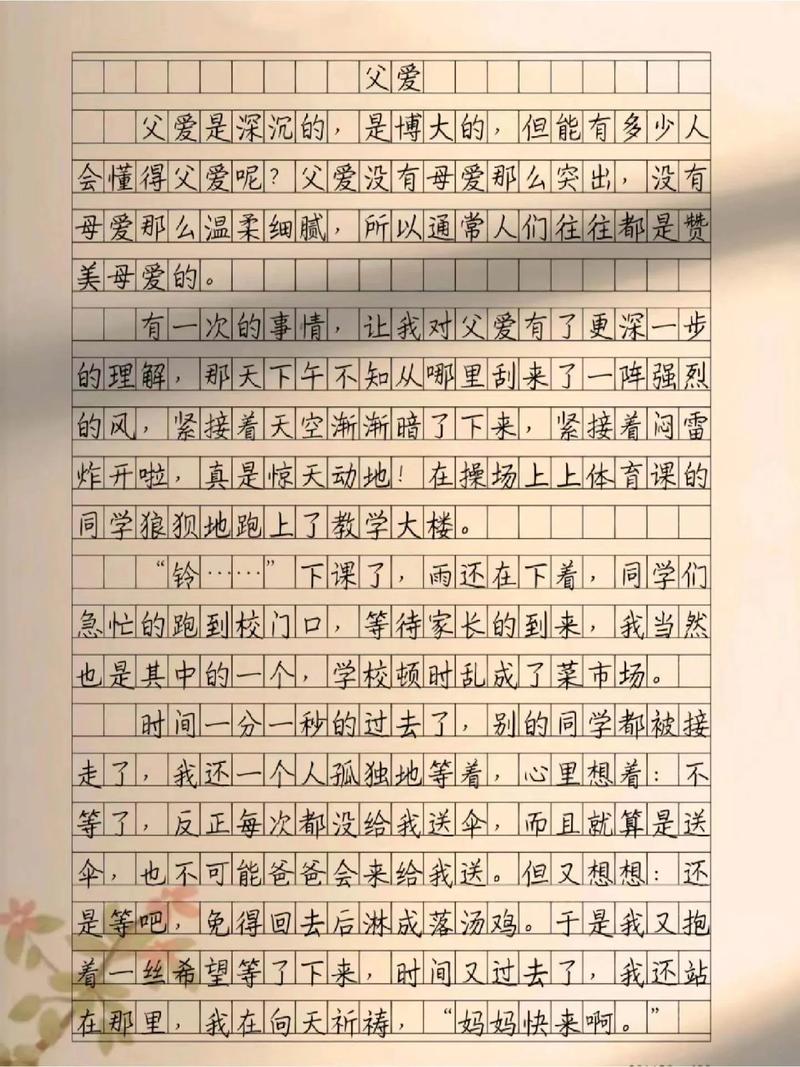 父爱
父爱是深沉的，是博大的，但能有多少人
会懂得父爱呢？父爱没有母爱那么突出，没有
母爱那么温柔细腻，所以通常人们往往都是赞
美母爱的。
有一次的事情，让我对父爱有了更深一步
的理解，那天下午不知从哪里刮来了一阵强烈
的风，紧接着天空渐渐暗了下来，紧接着闷雷
炸开啦，真是惊天动地！在操场上上体育课的
同学狼狈地跑上了教学大楼。
“铃……”下课了，雨还在下着，同学们
急忙的跑到校门口，等待家长的到来，我当然
也是其中的一个，学校顿时乱成了菜市场。
时间一分一秒的过去了，别的同学都被接
走了，我还一个人孤独地等着，心里想着：不
等了，反正每次都没给我送伞，而且就算是送
伞，也不可能爸爸会来给我送。但又想想：还
是等吧，免得回去后淋成落汤鸡。于是我又抱
着一丝希望等了下来，时间又过去了，我还站
在那里，我在向天祈祷，“妈妈快来啊。”